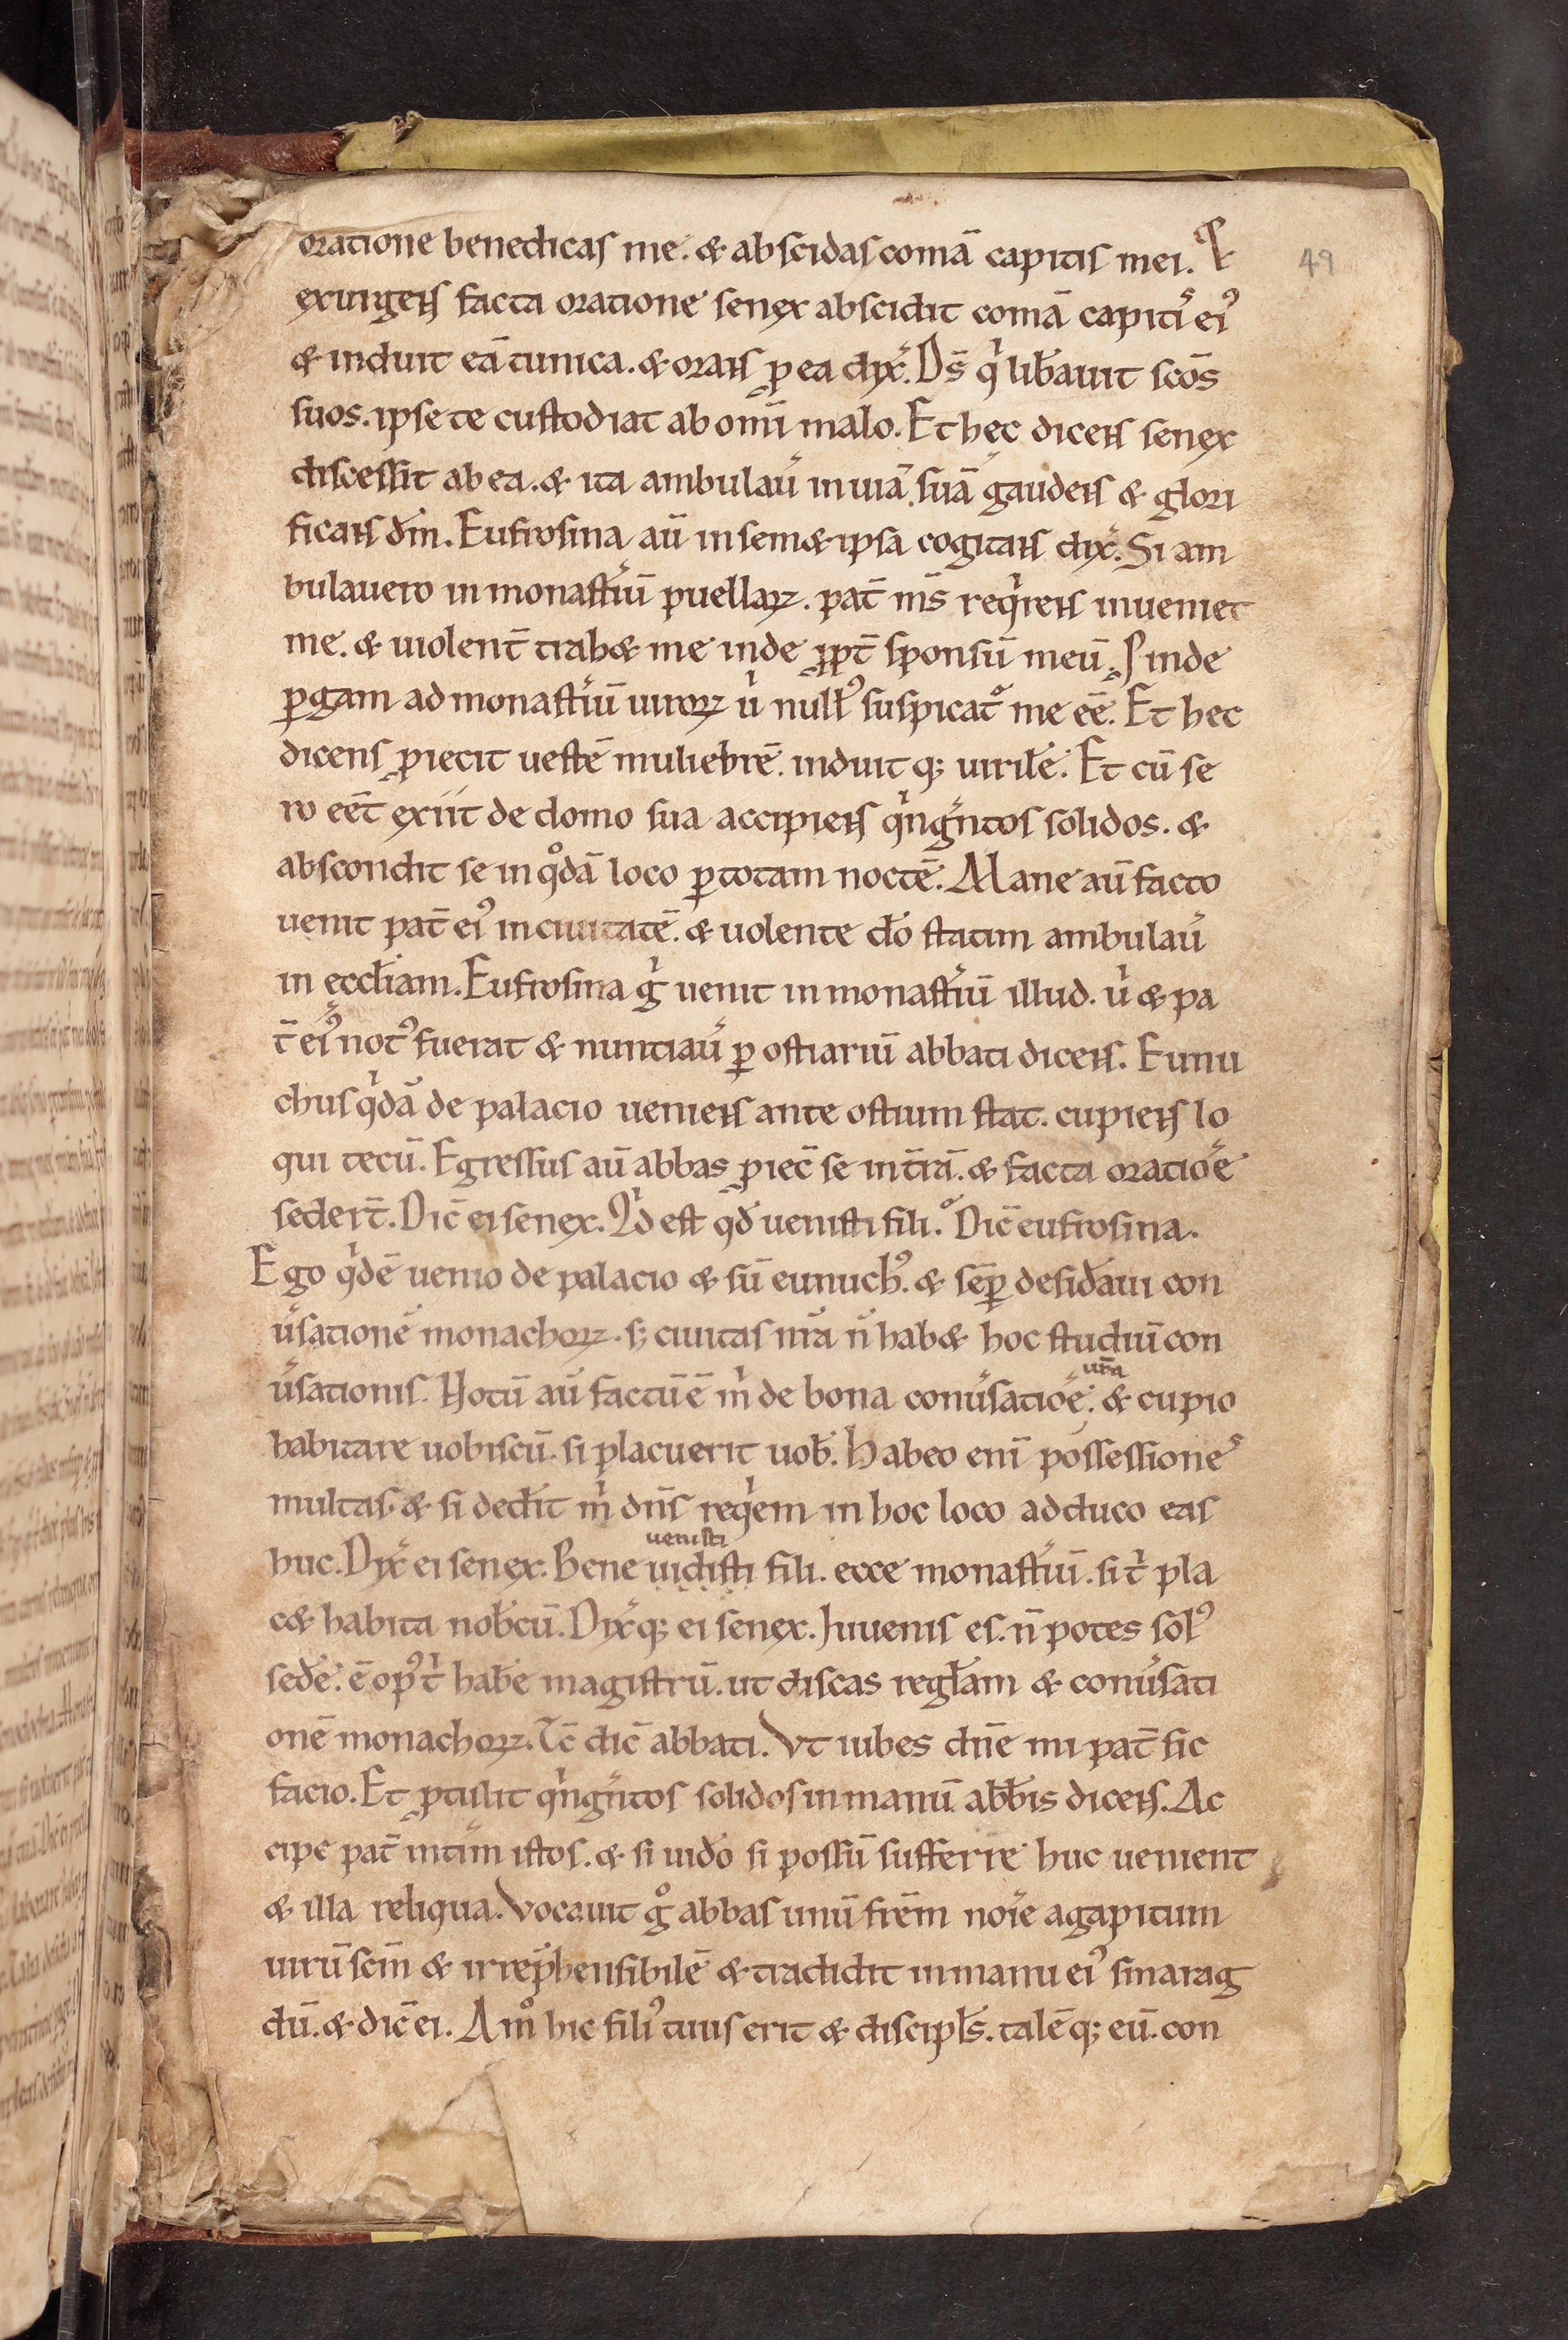 49
oratione benedicas me. & abscidas comā capitis mei. Et
exurgens facta oratione senex abscidit comā capitis ei⁹
& induit eā tunica. & orans ꝓ ea dix̄. D̄s qⁱ lib̄auit sc̄os
suos. ipse te custodiat ab om̄i malo. Et hęc dicens senex
discessit ab ea. & ita ambulau̓ in uiā suā gaudens & glori
ficans dm̄. Eufrosina aū in semetipsa cogitans dix̄. Si am
bulauero in monast̓iū puellaꝝ. pat̄ m̄s reqⁱrens inueniet
me. & uiolent̄ trahet me inde ꝓpt̄ sponsū meū. S; inde
ꝑgam ad monast̓iū uiroꝝ uⁱ null⁹ suspicat᷑ me ēe. Et hec
dicens ꝓiecit uestē muliebrē. induitq; uirilē. Et cū se
ro eēt exiit de domo sua accipiens qⁱngn̄tos solidos. &
abscondit se in qᵒdā loco ꝑ totam noctē. Mane aū facto
uenit pat̄ ei⁹ in ciuitatē. & uolente do̓ statim ambulau̓
in eccłiam. Eufrosina gⁱ uenit in monast̓iū illud. uⁱ & pa
t̄ ei⁹ not⁹ fuerat & nuntiau̓ ꝑ ostiariū abbati dicens. Eunu
chus qⁱdā de palacio ueniens ante ostium stat. cupiens lo
qui tecū. Egressus aū abbas ꝓiec̄ se in t̄rā. & facta oratiōe
seder̄t. Dic̄ ei senex. Qⁱd est qd̄ uenisti fili. Dic̄ eufrosina.
Ego qⁱdē uenio de palacio & sū eunuch⁹. & sēꝑ desid̓aui con
u̓sationē monachoꝝ. s; ciuitas nr̄a n̄ habet hoc studiū con
u̓sationis. Notū aū factū ē mⁱ de bona conu̓satiōe ur̄a. & cupio
habitare uobiscū. si placuerit uob̄. Habeo eni̅ possessiones
multas. & si ded̓it mⁱ dn̄s reqⁱem in hoc loco adduco eas
huc. Dix̄ ei senex. Bene uidisti uenisti fili. ecce monast̓iū. si tⁱ pla
cet habita nob̄cū. Dix̄q; ei senex. Iuuenis es. n̄ potes sol⁹
sed̓e. ē op⁹ tⁱ hab̓e magistrū. ut discas regłam & conu̓sati
onē monachoꝝ. Tc̄ dic̄ abbati. Vt iubes dn̄e mi pat̄ sic
facio. Et ꝓtulit qⁱngn̄tos solidos in manū abb̄is dicens. Ac
cipe pat̄ int̓im istos. & si uid̓o si possū sufferre huc uenient
& illa reliqua. Vocauit gᵒ abbas unū fr̄em noīe agapitum
uirū sc̄m & irrep̄hensibilē & tradidit in manu ei⁹ smarag
dū. & dic̄ ei. Amᵒ hic fili⁹ tuus erit & discipłs. talēq; eū. con